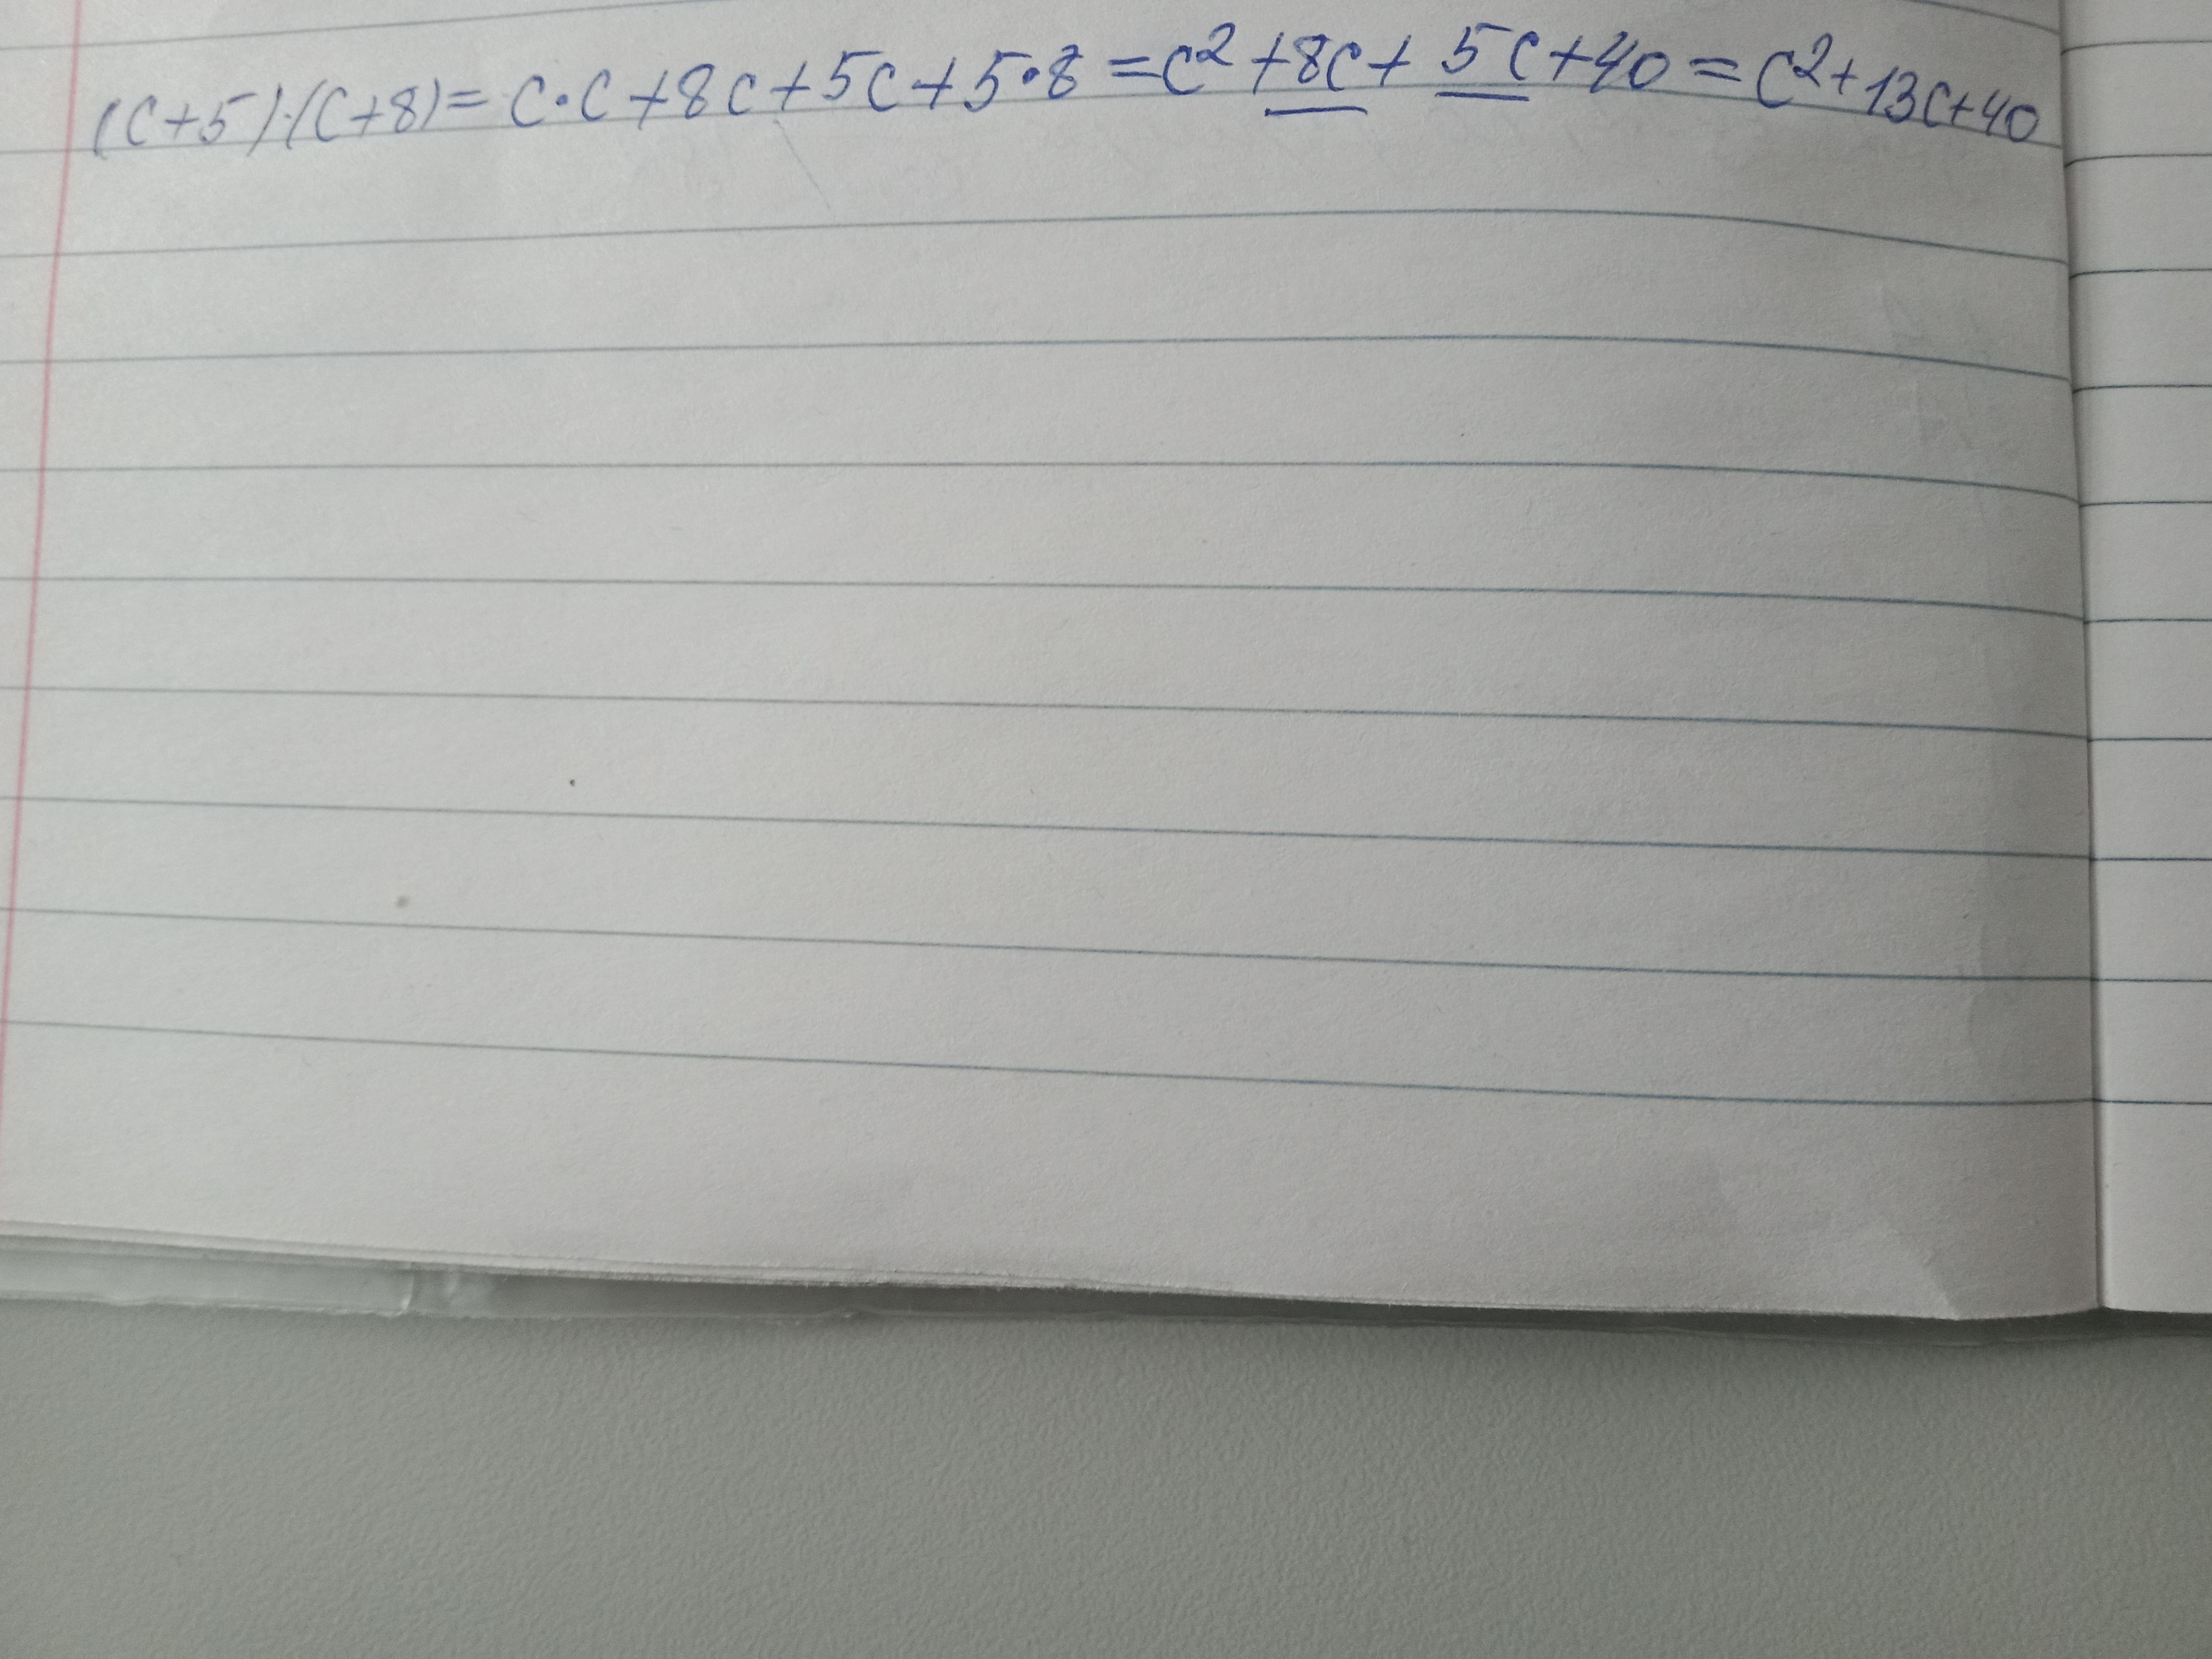 (c+5)·(c+8)= c·c+8c+5c+5·8=c²+8c+5c+40=c²+13c+40